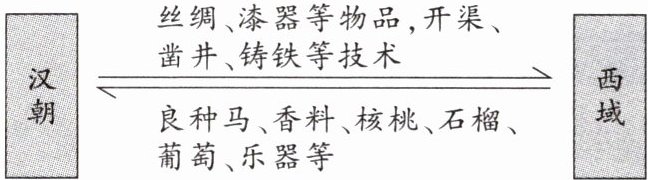 汉朝
丝绸、漆器等物品,开渠、
凿井、铸铁等技术
良种马、香料、核桃、石榴、
葡萄、乐器等
西域